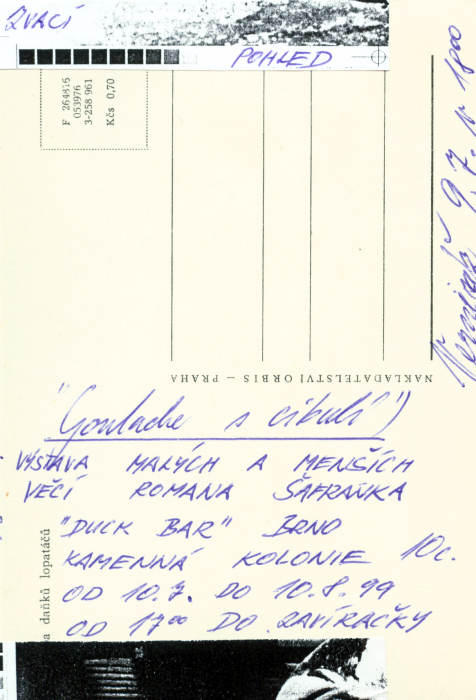 ZVACÍ
POHLED
F 264816
053976
3-258 961
Kčs 0,70
Vernisáž 9.7. v 18⁰⁰
NAKLADATELSTVÍ ORBIS — PRAHA
"Goulache s cibulí")
VÝSTAVA MALÝCH A MENŠÍCH
VĚCÍ ROMANA ŠAFRÁNKA
"DUCK BAR" BRNO
KAMENNÁ KOLONIE 10c.
OD 10.7. DO 10.8.99
OD 17⁰⁰ DO ZAVÍRAČKY
ba daňků lopatáčů